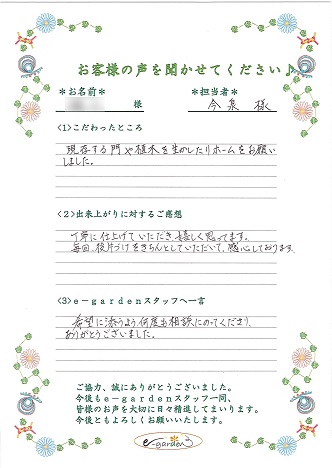 お客様の声を聞かせてください♪
＊お名前＊
＊担当者＊
様
今泉 様
<1>こだわったところ
現存する門や植木を生かしたリホームをお願い
しました。
<2>出来上がりに対するご感想
丁寧に仕上げていただき、嬉しく思ってます。
毎回、後片づけをきちんとしていただいて、感心しております。
<3>e-gardenスタッフへ一言
希望に添うよう何度も相談にのってくださり、
ありがとうございました。
ご協力、誠にありがとうございました。
今後もe-gardenスタッフ一同、
皆様のお声を大切に日々精進してまいります。
今後ともよろしくお願いいたします。
e-garden